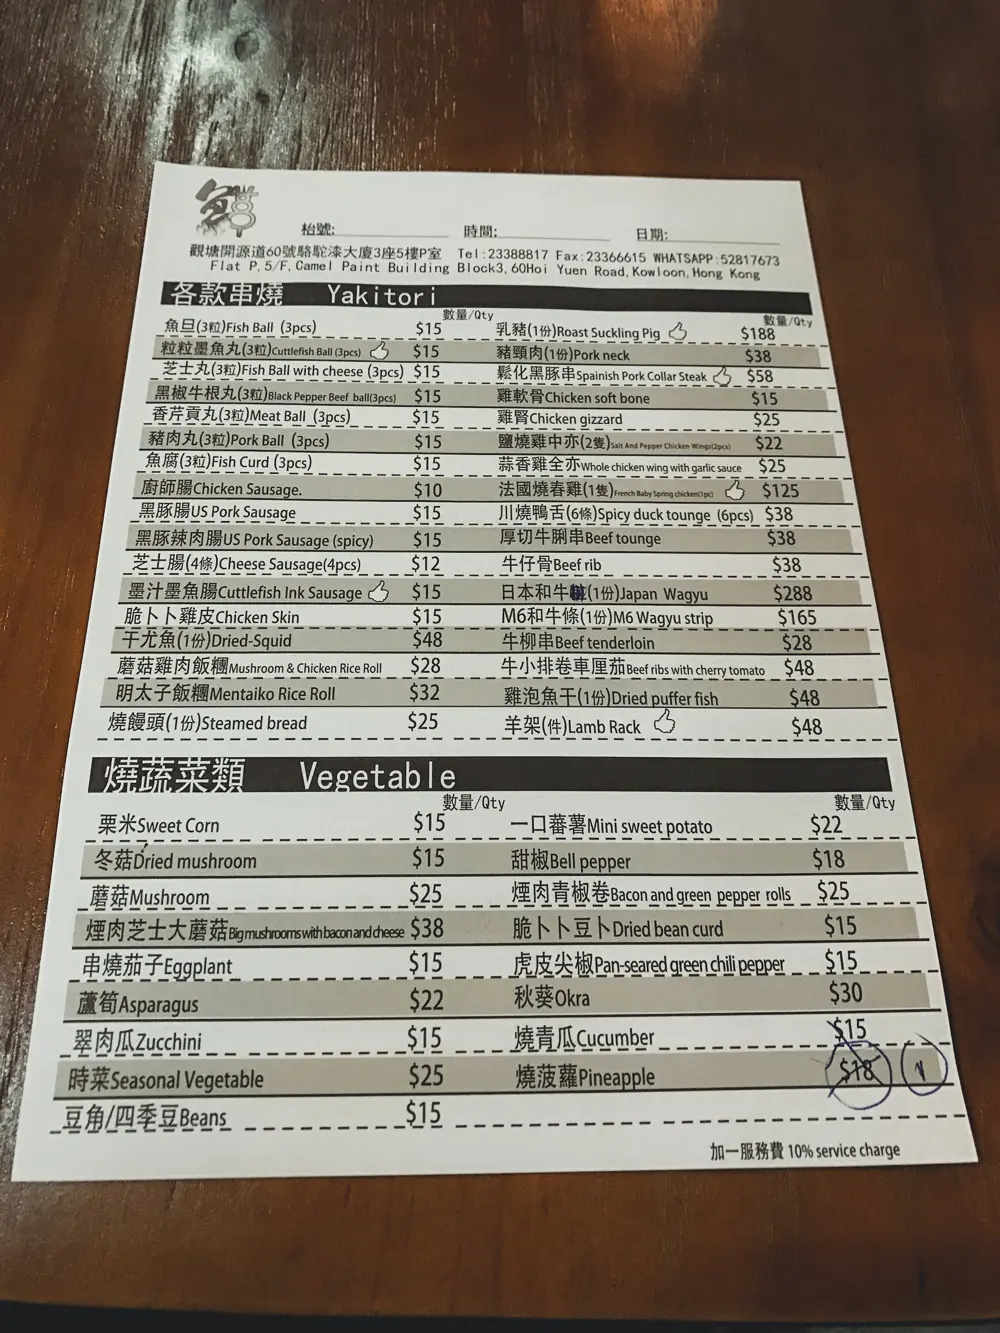 枱號: 時間: 日期:
觀塘開源道60號駱駝漆大廈3座5樓P室 Tel:23388817 Fax:23366615 WHATSAPP:52817673
Flat P,5/F,Camel Paint Building Block3,60Hoi Yuen Road,Kowloon,Hong Kong
各款串燒 Yakitori
數量/Qty 數量/Qty
魚旦(3粒)Fish Ball (3pcs) $15 乳豬(1份)Roast Suckling Pig $188
粒粒墨魚丸(3粒)Cuttlefish Ball (3pcs) $15 豬頸肉(1份)Pork neck $38
芝士丸(3粒)Fish Ball with cheese (3pcs) $15 鬆化黑豚串Spainish Pork Collar Steak $58
黑椒牛根丸(3粒)Black Pepper Beef ball(3pcs) $15 雞軟骨Chicken soft bone $15
香芹貢丸(3粒)Meat Ball (3pcs) $15 雞腎Chicken gizzard $25
豬肉丸(3粒)Pork Ball (3pcs) $15 鹽燒雞中亦(2隻)Salt And Pepper Chicken Wings(2pcs) $22
魚腐(3粒)Fish Curd (3pcs) $15 蒜香雞全亦Whole chicken wing with garlic sauce $25
廚師腸Chicken Sausage. $10 法國燒春雞(1隻)French Baby Spring chicken(1pc) $125
黑豚腸US Pork Sausage $15 川燒鴨舌(6條)Spicy duck tounge (6pcs) $38
黑豚辣肉腸US Pork Sausage (spicy) $15 厚切牛脷串Beef tounge $38
芝士腸(4條)Cheese Sausage(4pcs) $12 牛仔骨Beef rib $38
墨汁墨魚腸Cuttlefish Ink Sausage $15 日本和牛(1份)Japan Wagyu $288
脆卜卜雞皮Chicken Skin $15 M6和牛條(1份)M6 Wagyu strip $165
干尤魚(1份)Dried-Squid $48 牛柳串Beef tenderloin $28
蘑菇雞肉飯糰Mushroom & Chicken Rice Roll $28 牛小排卷車厘茄Beef ribs with cherry tomato $48
明太子飯糰Mentaiko Rice Roll $32 雞泡魚干(1份)Dried puffer fish $48
燒饅頭(1份)Steamed bread $25 羊架(件)Lamb Rack $48
燒蔬菜類 Vegetable
數量/Qty 數量/Qty
粟米Sweet Corn $15 一口蕃薯Mini sweet potato $22
冬菇Dried mushroom $15 甜椒Bell pepper $18
蘑菇Mushroom $25 煙肉青椒卷Bacon and green pepper rolls $25
煙肉芝士大蘑菇Big mushrooms with bacon and cheese $38 脆卜卜豆卜Dried bean curd $15
串燒茄子Eggplant $15 虎皮尖椒Pan-seared green chili pepper $15
蘆筍Asparagus $22 秋葵Okra $30
翠肉瓜Zucchini $15 燒青瓜Cucumber $15
時菜Seasonal Vegetable $25 燒菠蘿Pineapple $18
豆角/四季豆Beans $15
加一服務費 10% service charge